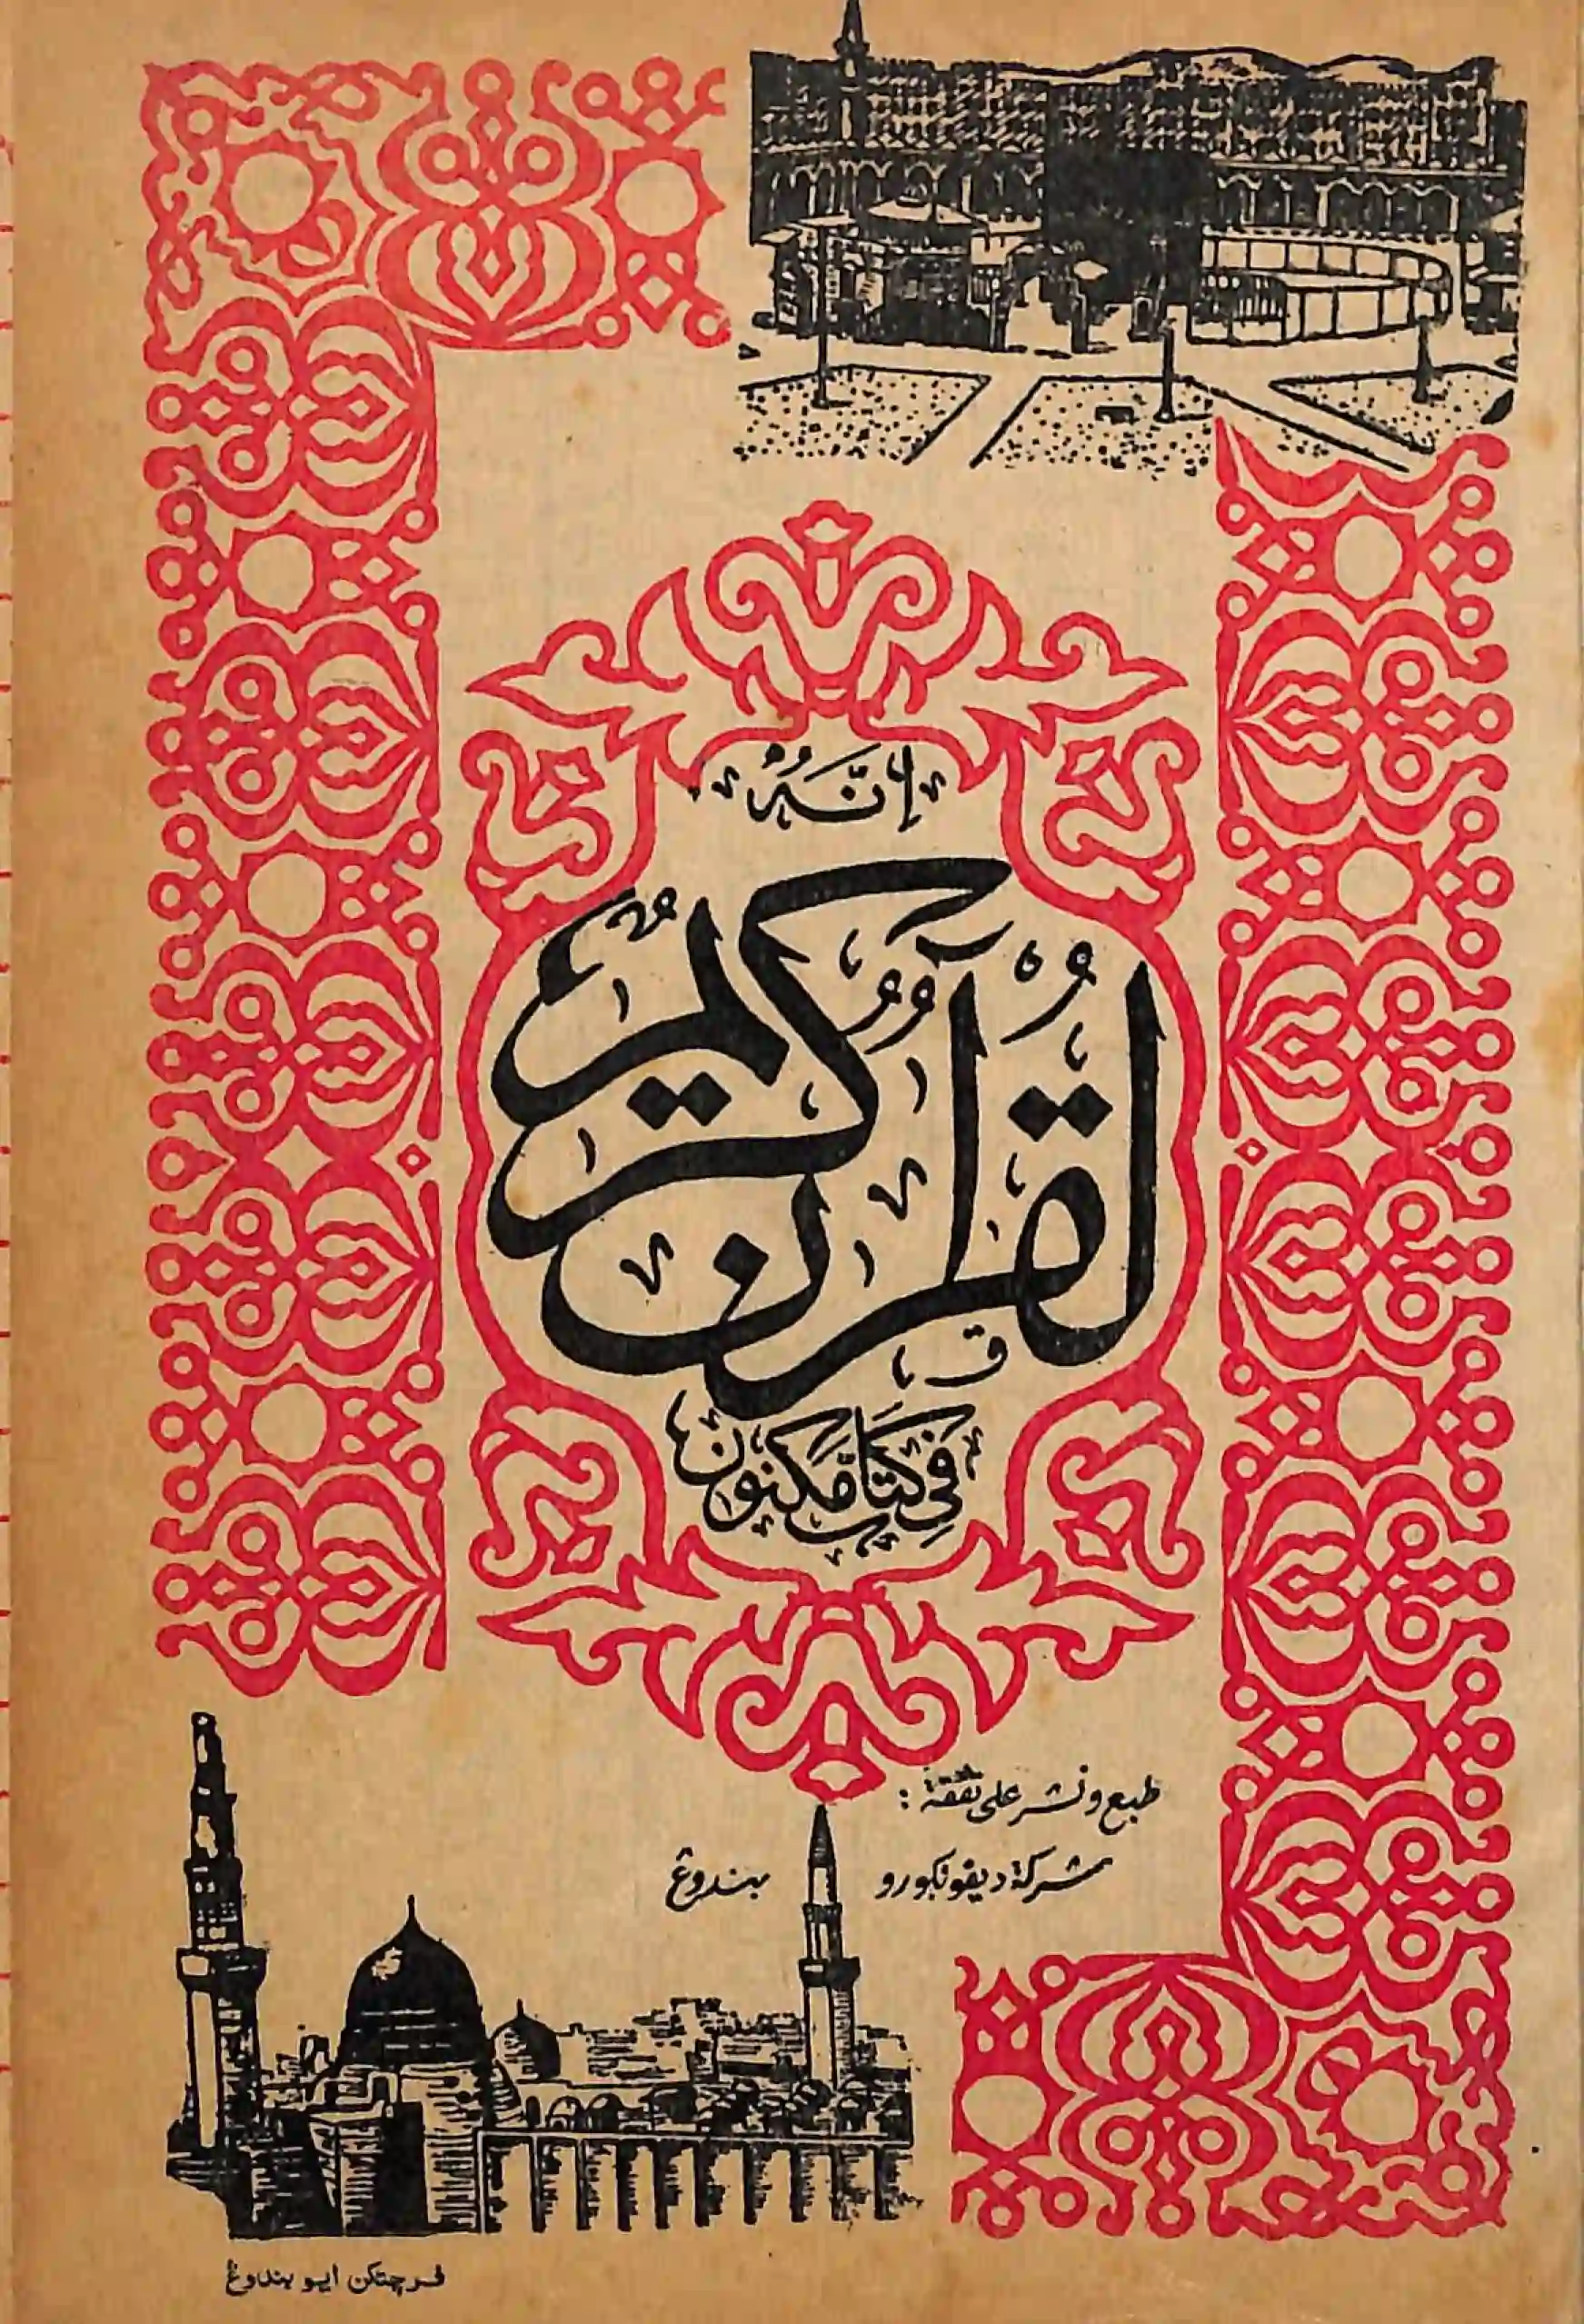 إِنَّهُ
لَقُرْآنٌ كَرِيمٌ
فِي كِتَابٍ مَّكْنُونٍ
طبع ونشر على نفقة :
شركة ديفونكورو بندوڠ
فرچتكن ايو بندوڠ